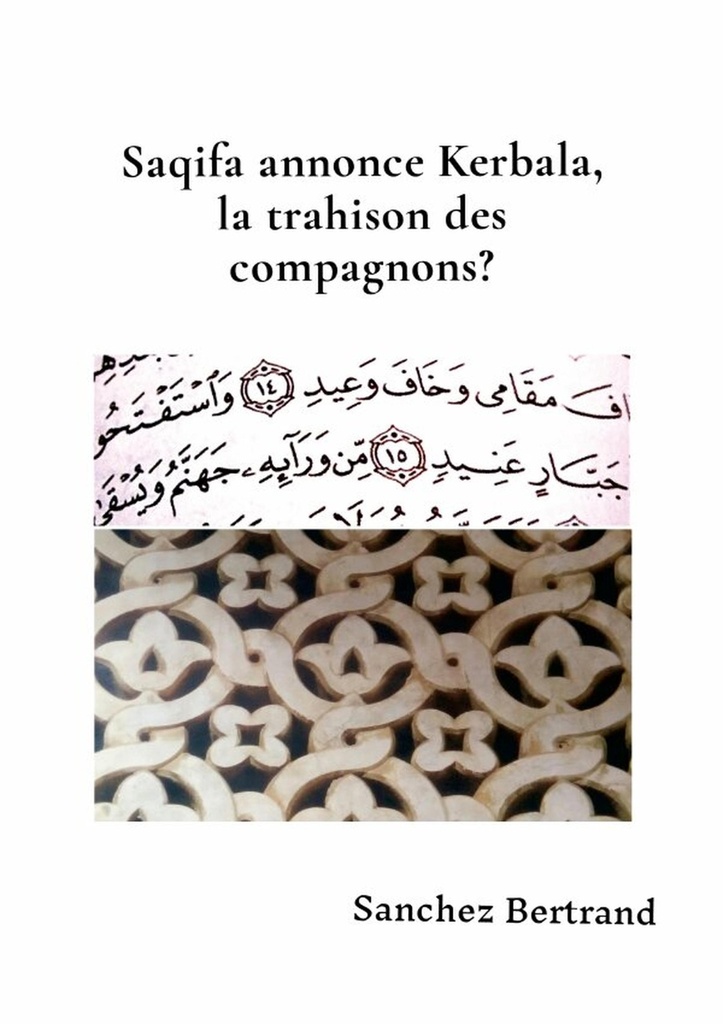 Saqifa annonce Kerbala,
la trahison des
compagnons?
مَقَامِى وَخَافَ وَعِيدِ ١٤
جَبَّارٍ عَنِيدٍ ١٥ مِّن وَرَآئِهِۦ جَهَنَّمُ
Sanchez Bertrand